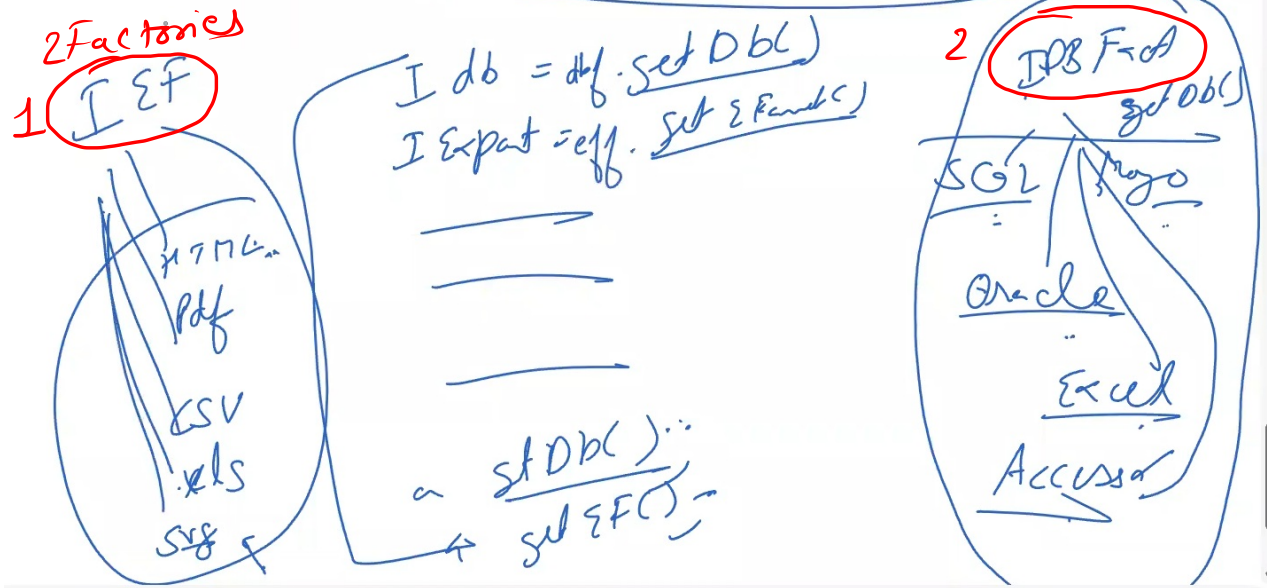 2 Factories
1
I EF
HTML..
Pdf
CSV
.xls
svg
I db = dbf.getDb()
I Export = eff.get EFormt()
getDb()..
get EF()
2
IDB Fact
getDb()
SQL
Mogo
Oracle
Excel
Accessor